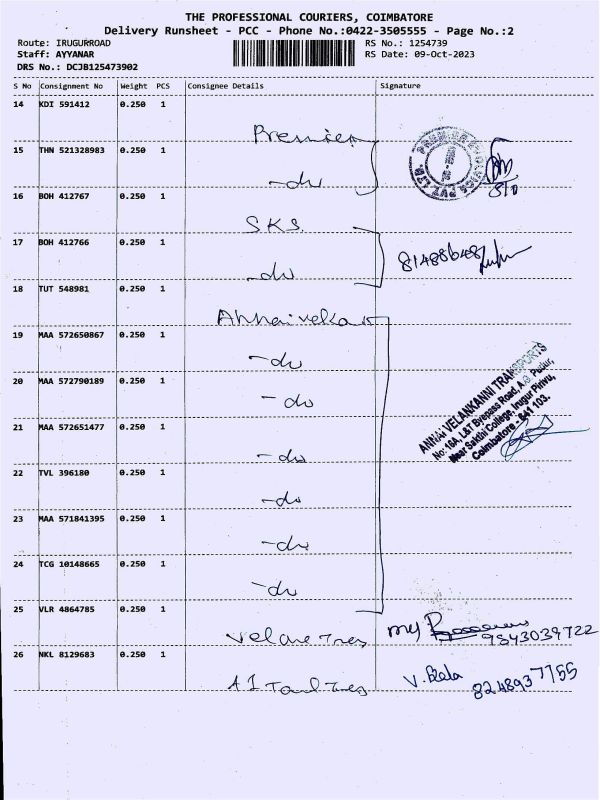 THE PROFESSIONAL COURIERS, COIMBATORE
Delivery Runsheet - PCC - Phone No.:0422-3505555 - Page No.:2
Route: IRUGURROAD
RS No.: 1254739
Staff: AYYANAR
RS Date: 09-Oct-2023
DRS No.: DCJB125473902
S No Consignment No Weight PCS Consignee Details Signature
14 KDI 591412 0.250 1
Premier
15 THN 521328983 0.250 1
-do
16 BOH 412767 0.250 1
SKS
17 BOH 412766 0.250 1
81488648
-do
18 TUT 548981 0.250 1
Annaivelan
19 MAA 572650867 0.250 1
-do
20 MAA 572790189 0.250 1
-do
21 MAA 572651477 0.250 1
-do
ANNAI VELANKANNI TRANSPORTS
No: 16A, L&T Byepass Road, A.G Pudur,
Near Sakthi College, Irugur Pirivu,
Coimbatore - 641 103.
22 TVL 396180 0.250 1
-do
23 MAA 571841395 0.250 1
-do
24 TCG 10148665 0.250 1
-do
25 VLR 4864785 0.250 1
Velave Tres
9843039722
26 NKL 8129683 0.250 1
A1 Taul Tres
V. Bala
8248937755